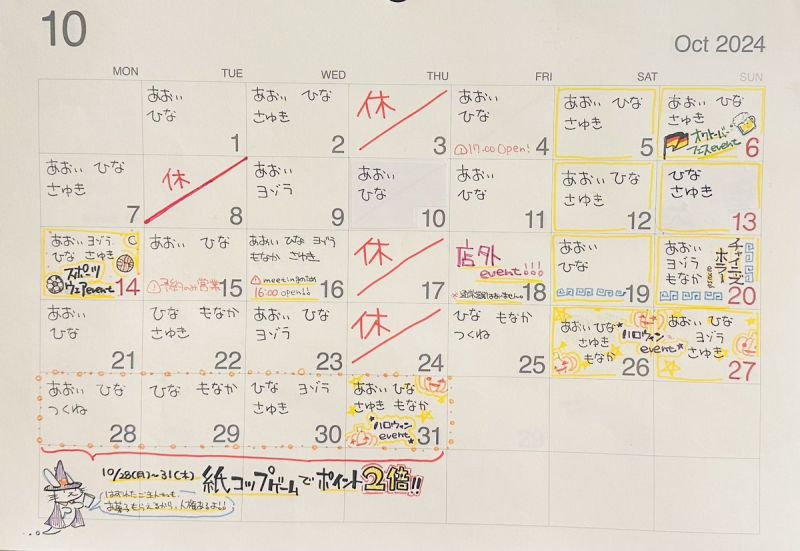 10
Oct 2024
MON TUE WED THU FRI SAT SUN
あおい
ひな
1
あおい ひな
さゆき
2
休
3
あおい
ひな
①17:00 Open!
4
あおい ひな
さゆき
5
あおい ひな
さゆき
オクトーバー
フェスevent
6
あおい ひな
さゆき
7
休
8
あおい
ヨゾラ
9
あおい
ひな
10
あおい
ひな
11
あおい ひな
さゆき
12
ひな
さゆき
13
あおい ヨゾラ
ひな さゆき
スポーツ
ウェアevent
14
あおい ひな
予約のみ営業
15
あおい ひな ヨゾラ
もなか さゆき
meetingのため
16:00 open!!
16
休
17
店外
event!!!
※通常営業はありません。
18
あおい
ひな
19
あおい
ヨゾラ
もなか
チャイニーズ
ホラー
event
20
あおい
ひな
21
ひな もなか
さゆき
22
あおい ひな
ヨゾラ
23
休
24
ひな もなか
つくね
25
あおい ひな
さゆき
もなか
ハロウィン
event
26
あおい ひな
ヨゾラ
さゆき
27
あおい ひな
つくね
28
ひな もなか
29
ひな ヨゾラ
さゆき
30
あおい ひな
さゆき もなか
ハロウィン
event
31
10/28(月)～31(木) 紙コップゲームでポイント2倍!!
お菓子もらえるから、人権あるよ!!